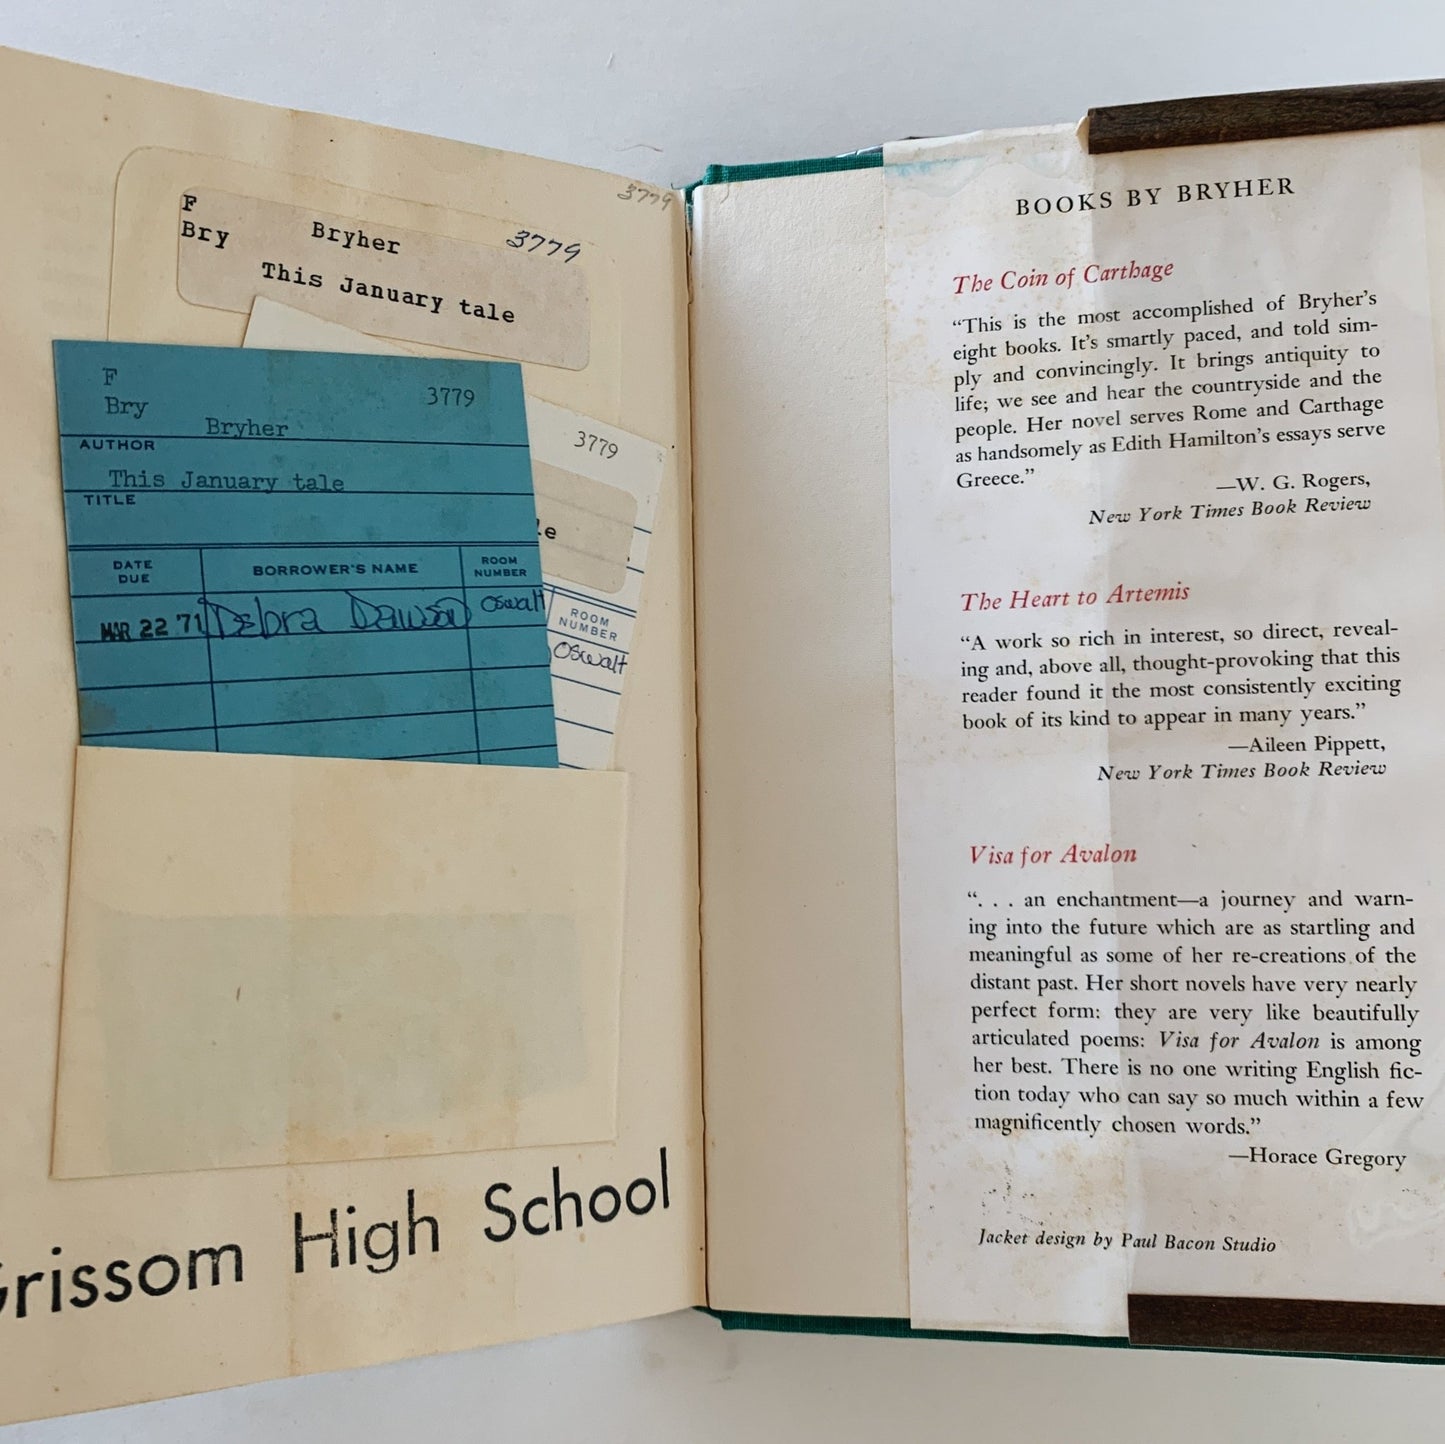 3779
F
Bry Bryher 3779
This January tale
F
Bry 3779
Bryher
AUTHOR
This January tale
TITLE
DATE DUE BORROWER'S NAME ROOM NUMBER
MAR 22 '71 Debra Dawson Oswalt
3779
le
ROOM
NUMBER
Oswalt
Grissom High School
BOOKS BY BRYHER
The Coin of Carthage
“This is the most accomplished of Bryher’s
eight books. It’s smartly paced, and told sim-
ply and convincingly. It brings antiquity to
life; we see and hear the countryside and the
people. Her novel serves Rome and Carthage
as handsomely as Edith Hamilton’s essays serve
Greece.”
—W. G. Rogers,
New York Times Book Review
The Heart to Artemis
“A work so rich in interest, so direct, reveal-
ing and, above all, thought-provoking that this
reader found it the most consistently exciting
book of its kind to appear in many years.”
—Aileen Pippett,
New York Times Book Review
Visa for Avalon
“. . . an enchantment—a journey and warn-
ing into the future which are as startling and
meaningful as some of her re-creations of the
distant past. Her short novels have very nearly
perfect form: they are very like beautifully
articulated poems: Visa for Avalon is among
her best. There is no one writing English fic-
tion today who can say so much within a few
magnificently chosen words.”
—Horace Gregory
Jacket design by Paul Bacon Studio